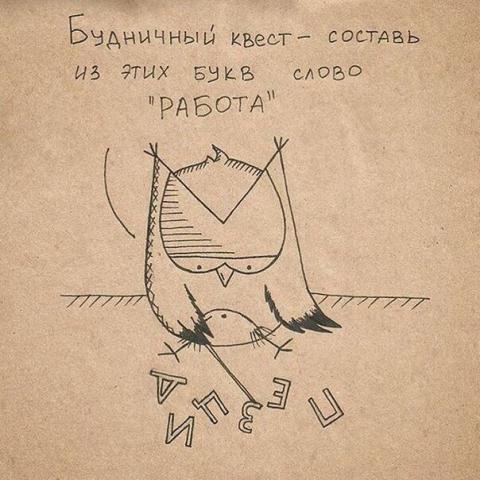 Будничный квест – составь
из этих букв слово
"РАБОТА"
Д И Ц З Е П